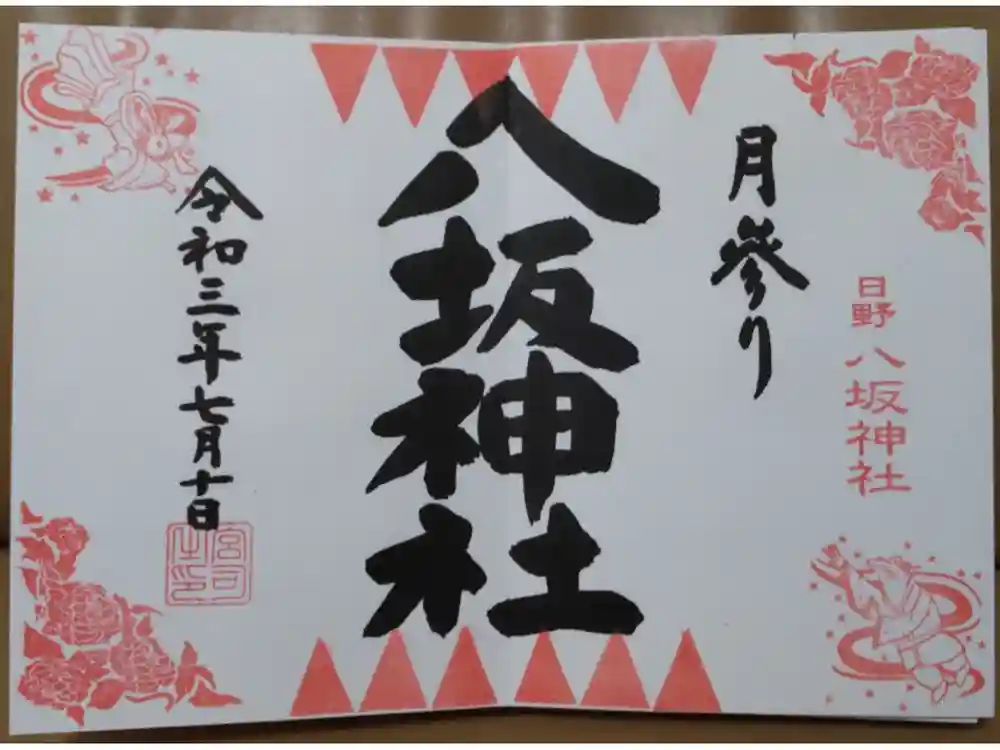 月参り
日野 八坂神社
八坂神社
令和三年七月十日
宮司之印